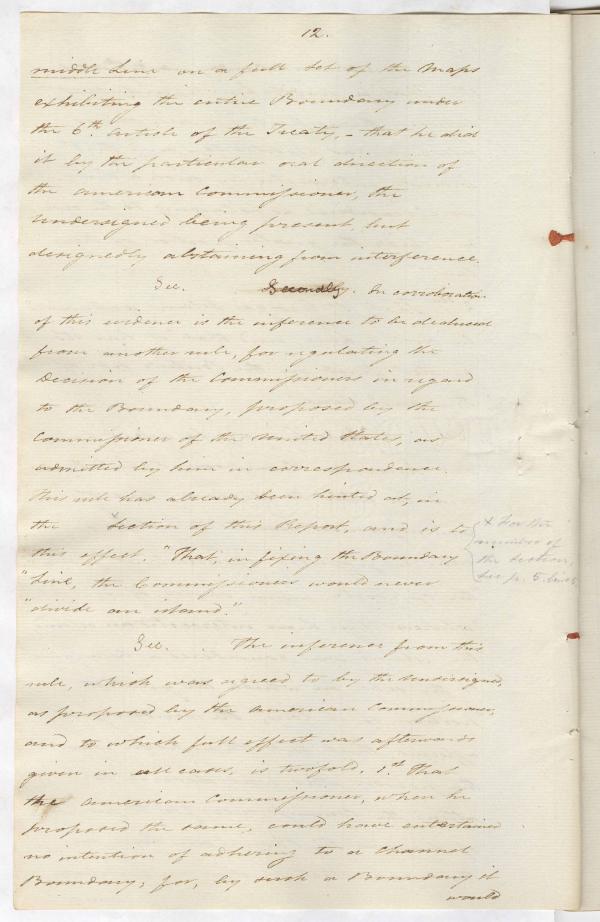 12.
middle Line on a full set of the Maps
exhibiting the entire Boundary under
the 6th. Article of the Treaty, - that he did
it by the particular oral direction of
the American Commissioner, the
Undersigned being present, but
designedly abstaining from interference.
Sec. Secondly. In corroboration
of this evidence is the inference to be deduced
from another rule, for regulating the
Decision of the Commissioners in regard
to the Boundary, proposed by the
Commissioner of the United States, as
admitted by him in correspondence.
this rule has already been hinted at, in
the x Section of this Report, and is to
this effect. "That, in fixing the Boundary
"Line, the Commissioners would never
"divide an island."
x For the
number of
the Section,
see p. 5.
Sec. The inference from this
rule, which was agreed to by the Undersigned,
as proposed by the American Commissioner,
and to which full effect was afterwards
given in all cases, is twofold. 1st. That
the American Commissioner, when he
proposed the same, could have entertained
no intention of adhering to a Channel
Boundary; for, by such a Boundary it
would